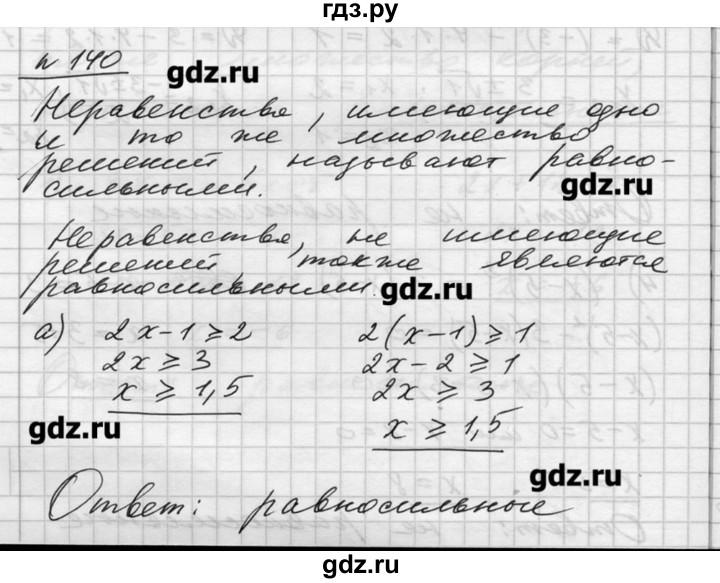 гдз.ру
n 140
gdz.ru
Неравенства, имеющие одно
и то же множество
решений, называют равно-
сильными.
gdz.ru
Неравенства, не имеющие
решений, также являются
равносильными.
gdz.ru
а) 2x-1⩾2 2(x-1)⩾1
2x⩾3 2x-2⩾1
x⩾1,5 2x⩾3
gdz.ru x⩾1,5
gdz.ru
Ответ: равносильные
gdz.ru